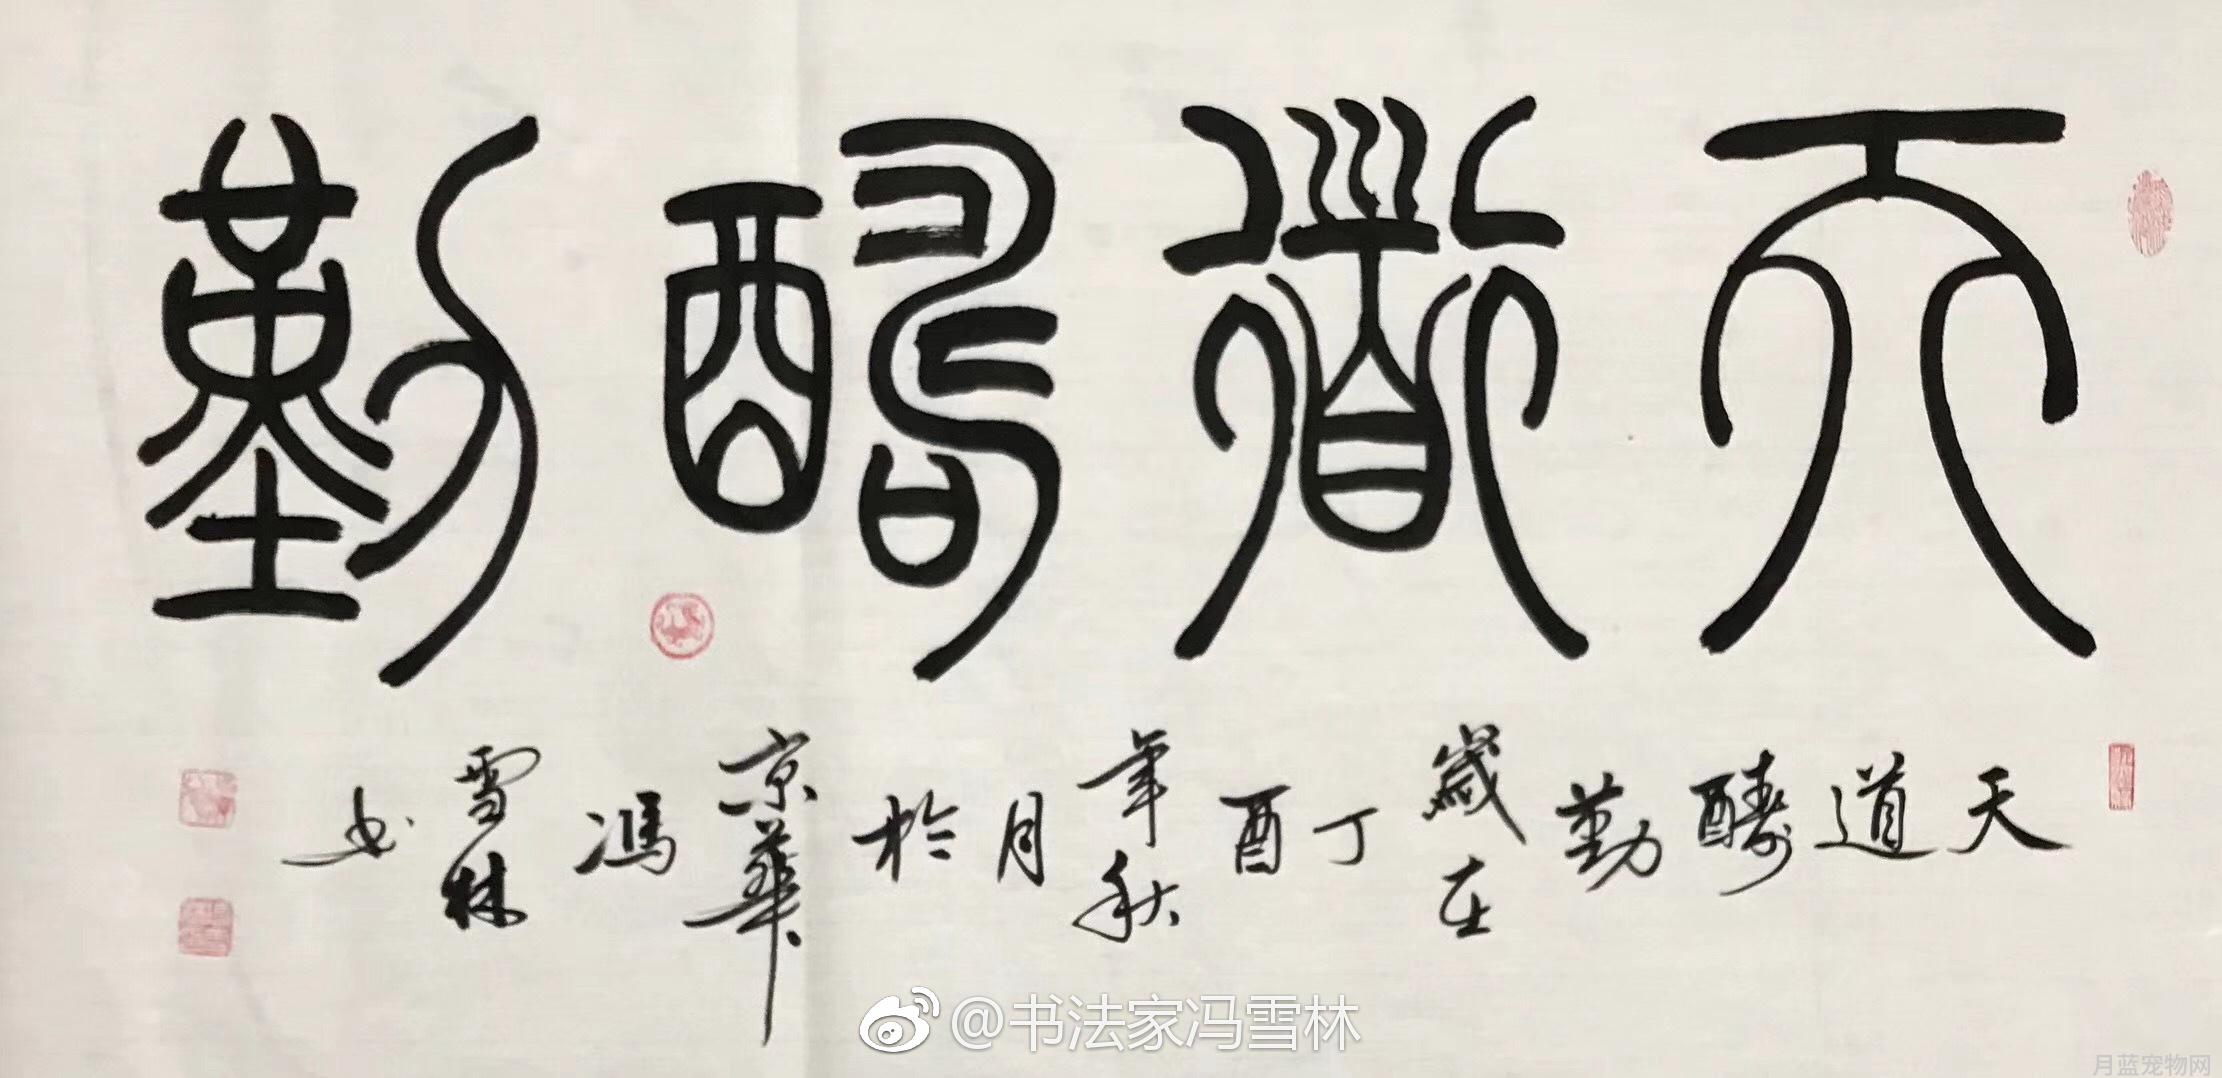 天道酬勤
天道酬勤歲在丁酉年秋月於京華馮雪林书
@书法家冯雪林
月蓝宠物网